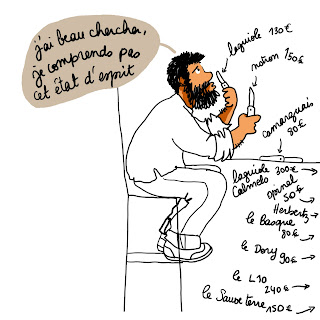 j'ai beau chercher,
je comprends pas
cet état d'esprit
laguiole 130€
nontron 150€
camarguais
80€
laguiole 300€
Calmels
opinel
50€
Herbertz
le Basque
80€
le Dozy 90€
le L10
240€
le Sauveterre 150€